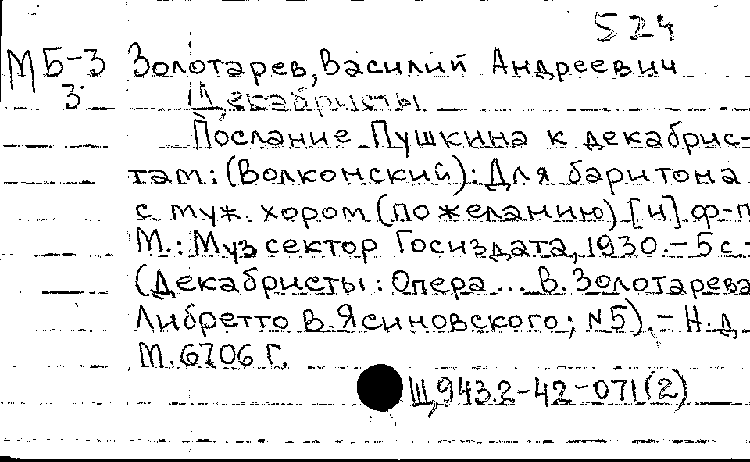 524
МБ-3 Золотарев, Василий Андреевич
З Декабристы
Послание Пушкина к декабрис-
там: (Волконский): Для баритона
с муж. хором (по желанию) [и] ф-п
М.: Музсектор Госиздата, 1930. - 5 с.
(Декабристы: Опера ... В. Золотарева
Либретто В. Ясиновского; №5). - Н.д.
М. 6706 Г.
Щ943.2-42-071(2)